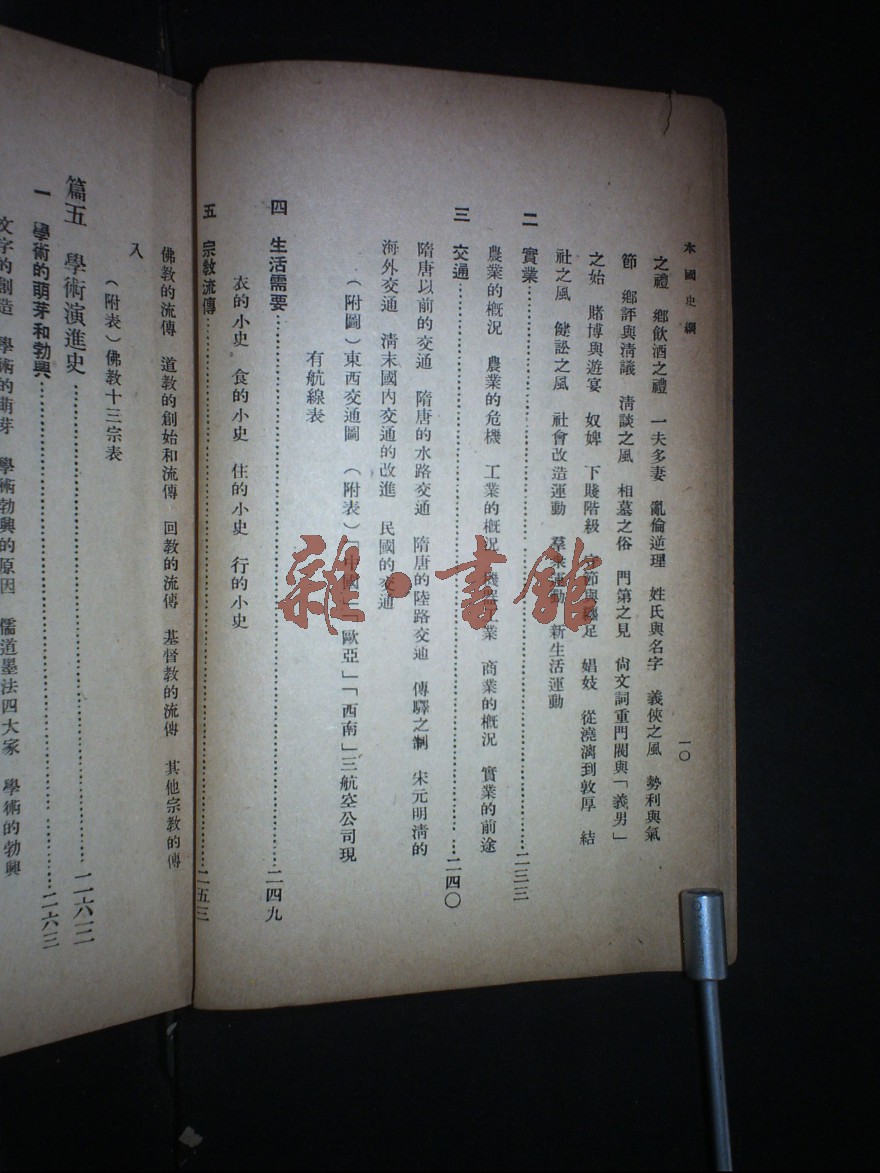 本國史綱
一〇
之禮　鄉飲酒之禮　一夫多妻　亂倫逆理　姓氏與名字　義俠之風　勢利與氣
節　鄉評與清議　清談之風　相墓之俗　門第之見　尙文詞重門閥與「義男」
之始　賭博與遊宴　奴婢　下賤階級　守節與纏足　娼妓　從澆漓到敦厚　結
社之風　健訟之風　社會改造運動　羣衆運動　新生活運動
二　實業……二三三
農業的概況　農業的危機　工業的概況　機器工業　商業的概況　實業的前途
三　交通……二四〇
隋唐以前的交通　隋唐的水路交通　隋唐的陸路交通　傳驛之制　宋元明清的
海外交通　清末國內交通的改進　民國的交通
（附圖）東西交通圖　（附表）「中國」「歐亞」「西南」三航空公司現
有航線表
四　生活需要……二四九
衣的小史　食的小史　住的小史　行的小史
五　宗敎流傳……二五三
佛敎的流傳　道敎的創始和流傳　回敎的流傳　基督敎的流傳　其他宗敎的傳
入
（附表）佛敎十三宗表
篇五　學術演進史……二六三
一　學術的萌芽和勃興……二六三
文字的創造　學術的萌芽　學術勃興的原因　儒道墨法四大家　學術的勃興
雜·書館